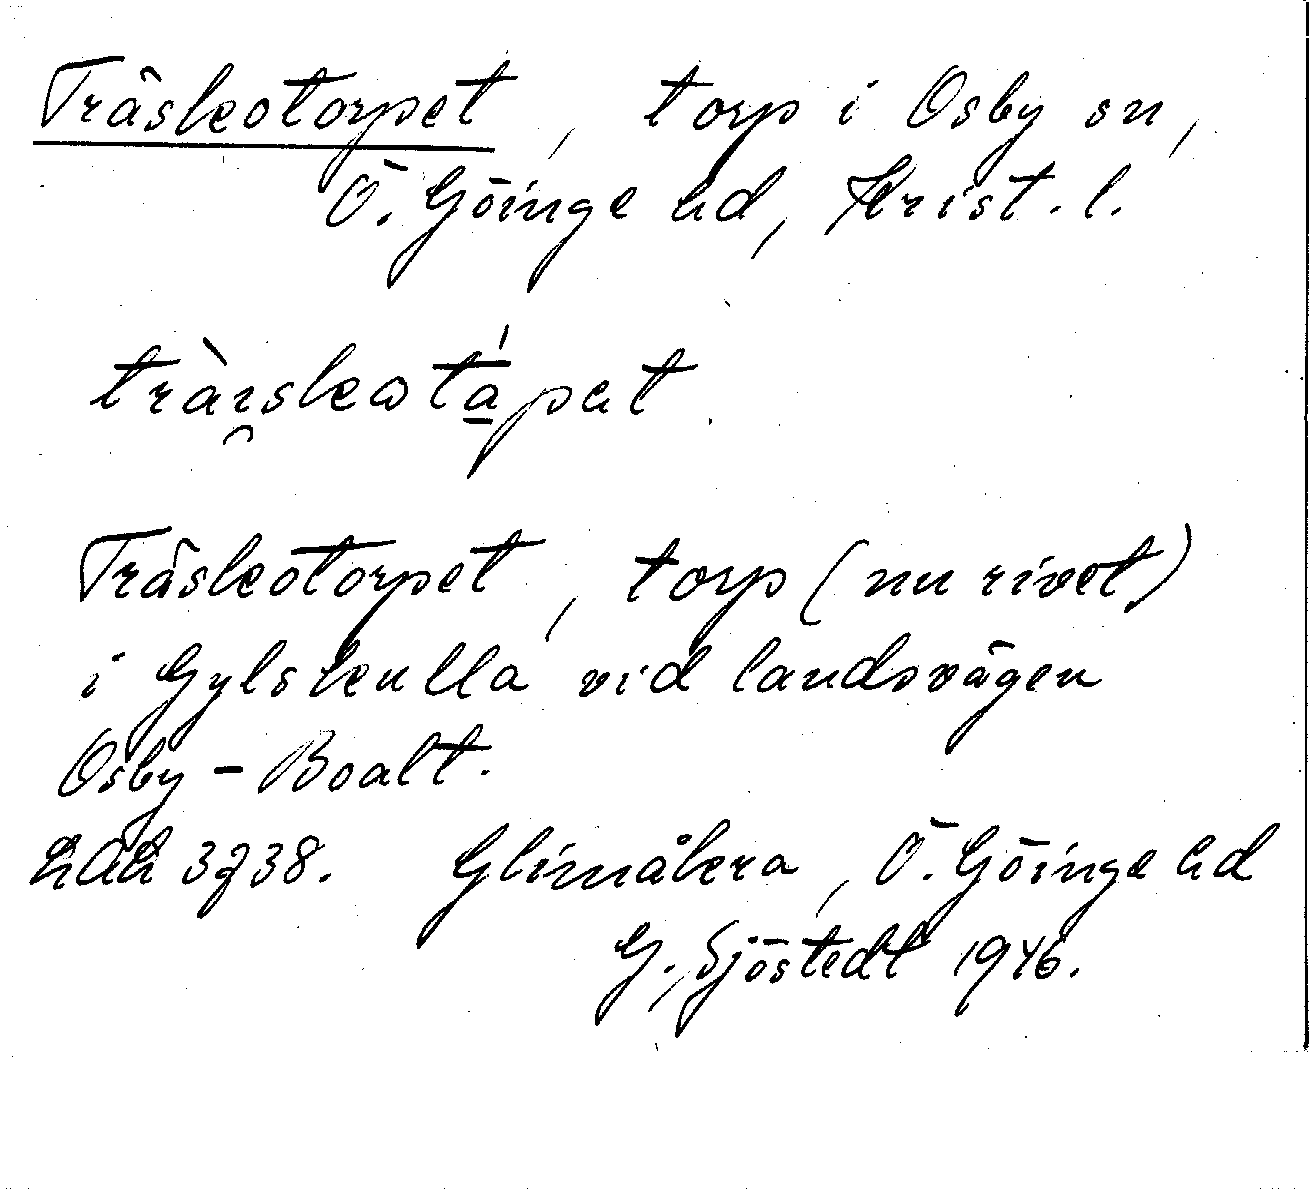 Träskotorpet, torp i Osby sn,
Ö. Göinge hd, Krist. l.
trà̯ıskωtá̱pat
Träskotorpet, torp (nu rivet)
i Gylskulla vid landsvägen
Osby - Boalt.
LAL 3738. Glimåkra, Ö. Göinge hd
G. Sjöstedt 1946.